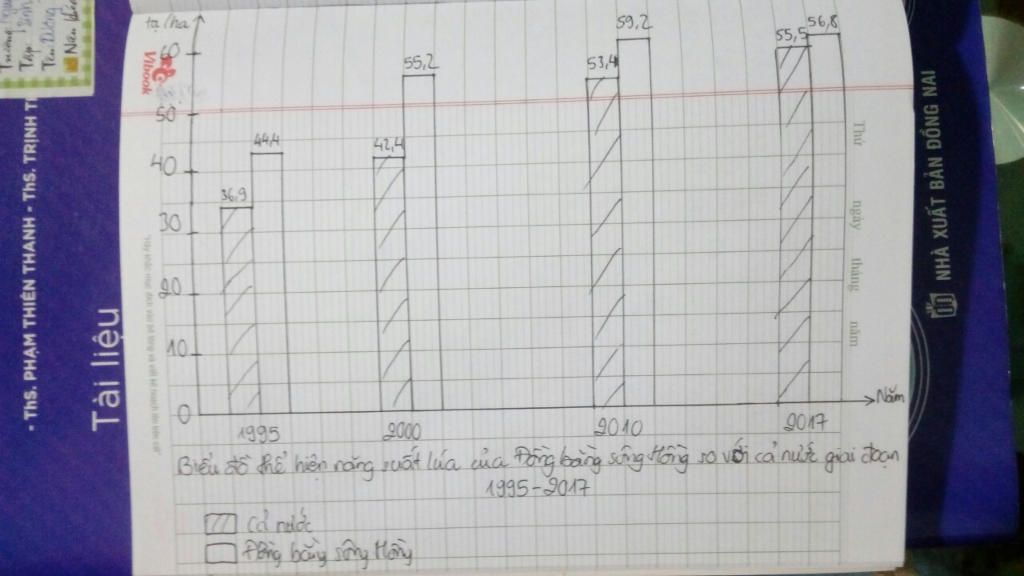 tạ/ha
60
50
40
30
20
10
0
36,9
44,4
42,4
55,2
53,4
59,2
55,5
56,8
1995
2000
2010
2017
Năm
Biểu đồ thể hiện năng suất lúa của Đồng bằng sông Hồng so với cả nước giai đoạn
1995-2017
Cả nước
Đồng bằng sông Hồng
Vibook
Thứ ngày tháng năm
- ThS. PHẠM THIÊN THANH - ThS. TRỊNH
Tài liệu
NHÀ XUẤT BẢN ĐỒNG NAI